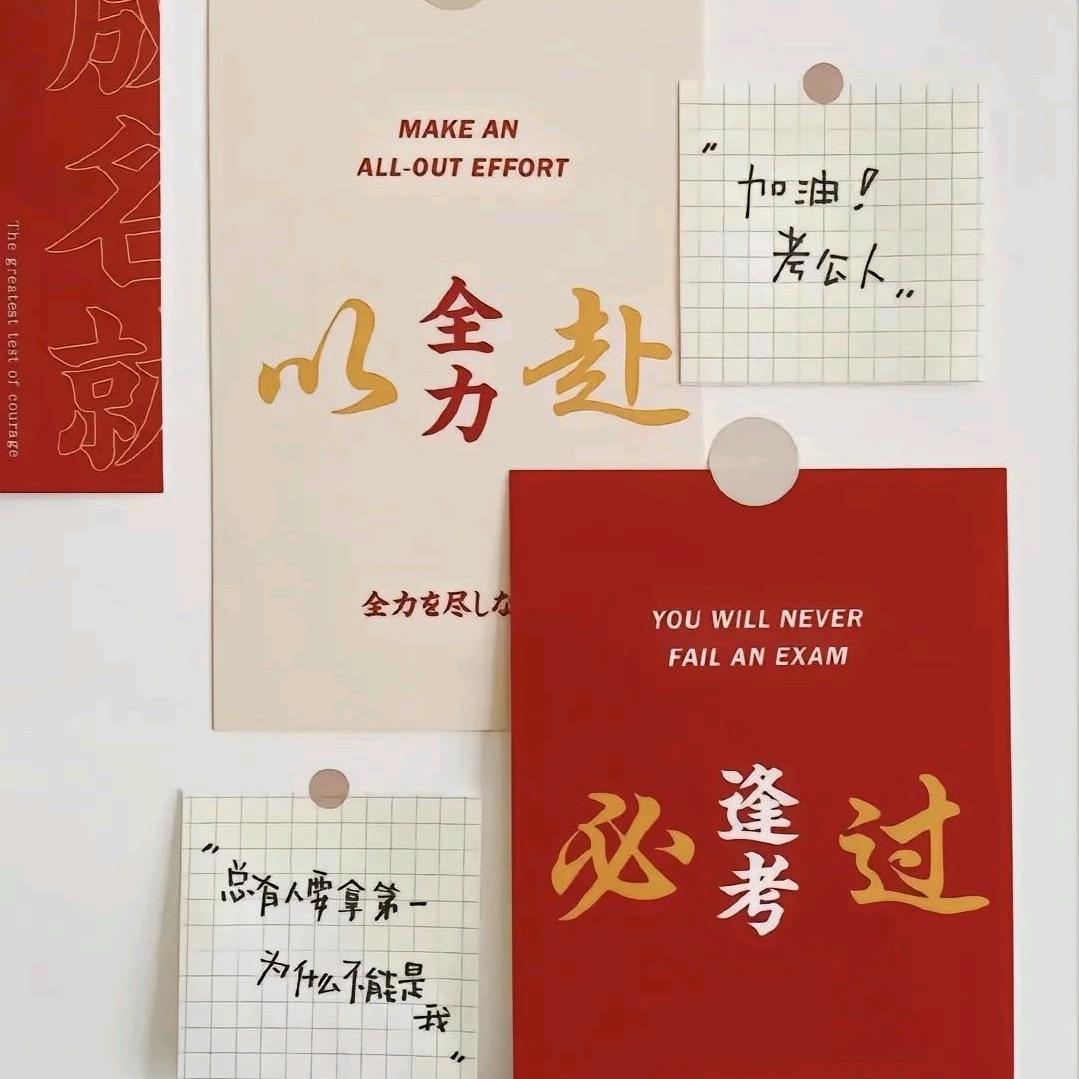 成名就
The greatest test of courage
MAKE AN
ALL-OUT EFFORT
全力
以赴
全力を尽しな
"加油!
考公人"
YOU WILL NEVER
FAIL AN EXAM
逢考
必过
"总有人要拿第一
为什么不能是
我"